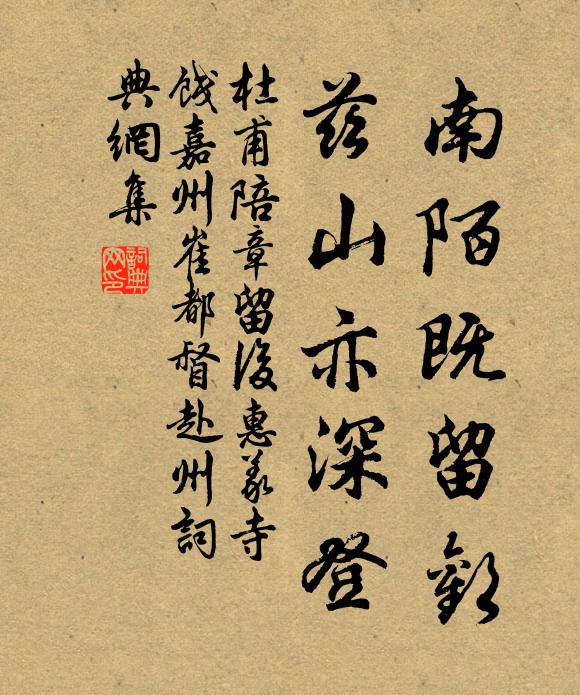 南陌既留歡
茲山亦深登
杜甫陪章留後惠義寺
餞嘉州崔都督赴州詞
典網集
詞典
网印